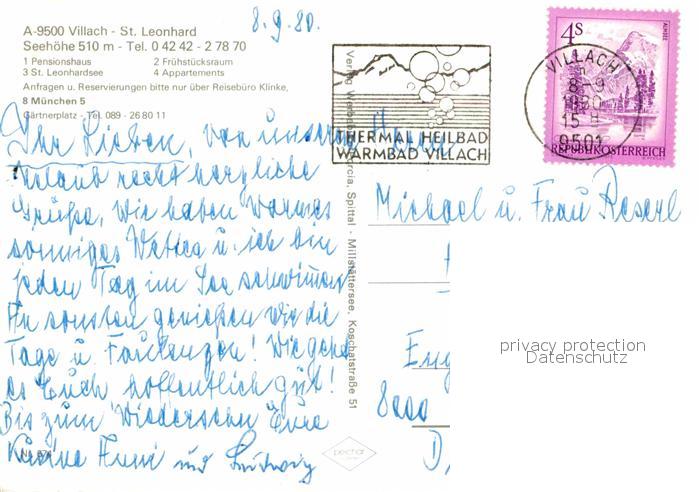 A-9500 Villach - St. Leonhard
Seehöhe 510 m - Tel. 0 42 42 - 2 78 70
1 Pensionshaus 2 Frühstücksraum
3 St. Leonhardsee 4 Appartements
Anfragen u. Reservierungen bitte nur über Reisebüro Klinke,
8 München 5
Gärtnerplatz - Tel. 089 - 26 80 11
8.9.80.
Ihr Lieben, von unserem
Urlaub recht herzliche
Grüße. Wir haben warmes
sonniges Wetter u. ich bin
jeden Tag im See schwimmen
An sonsten genießen wir die
Tage u. Faulenzen! Wie geht
es Euch hoffentlich gut!
Bis zum Wiedersehen Eure
Anni und Ludwig
THERMAL HEILBAD
WARMBAD VILLACH
VILLACH
8.-9
1980
15
9501
4S
ALMSEE
REPUBLIK ÖSTERREICH
Spittal - Millstättersee, Koschatstraße 51
Michael u. Frau Reserl
Eug
8000
D,
privacy protection
Datenschutz